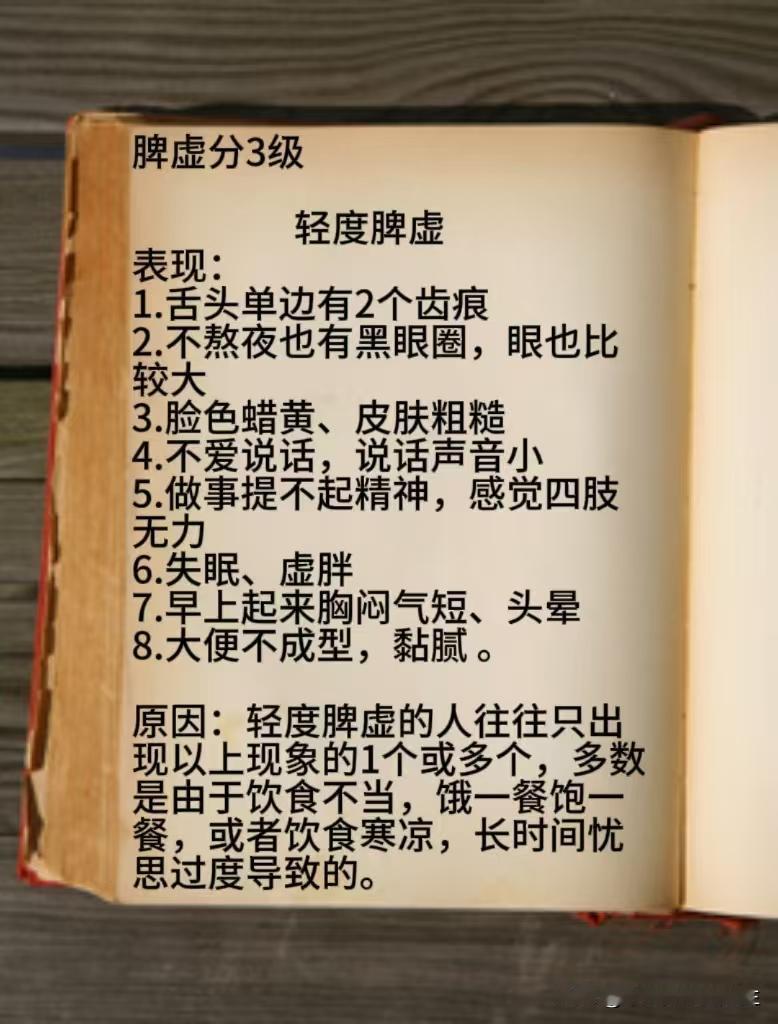 脾虚分3级
轻度脾虚
表现：
1.舌头单边有2个齿痕
2.不熬夜也有黑眼圈，眼也比
较大
3.脸色蜡黄、皮肤粗糙
4.不爱说话，说话声音小
5.做事提不起精神，感觉四肢
无力
6.失眠、虚胖
7.早上起来胸闷气短、头晕
8.大便不成型，黏腻 。
原因：轻度脾虚的人往往只出
现以上现象的1个或多个，多数
是由于饮食不当，饿一餐饱一
餐，或者饮食寒凉，长时间忧
思过度导致的。